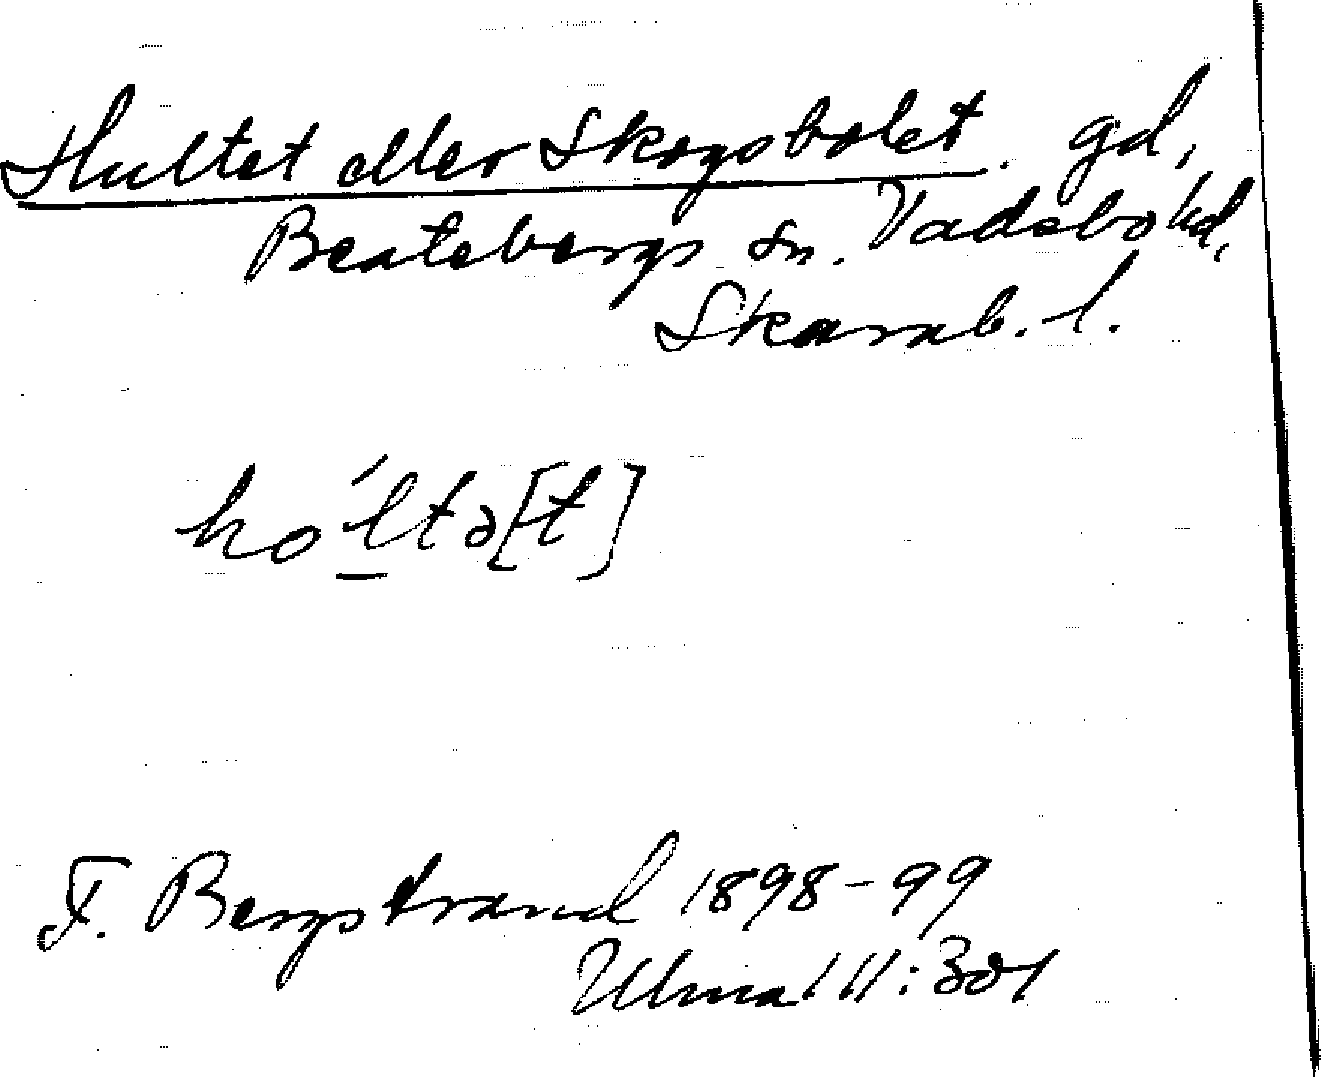 Hultet eller Skogsbolet. gd,
Beatebergs sn. Vadsbo hd,
Skarab. l.
hóltə[t]
F. Bergstrand 1898-99
Ulma 111:301